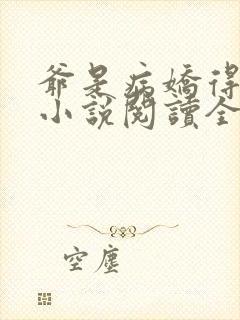 爺是病嬌得
小說閱讀全
空塵